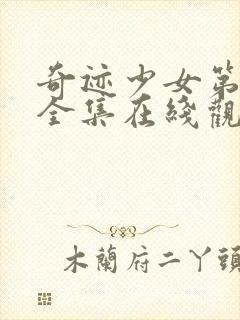 奇迹少女第
全集在綫觀
木蘭府二丫頭